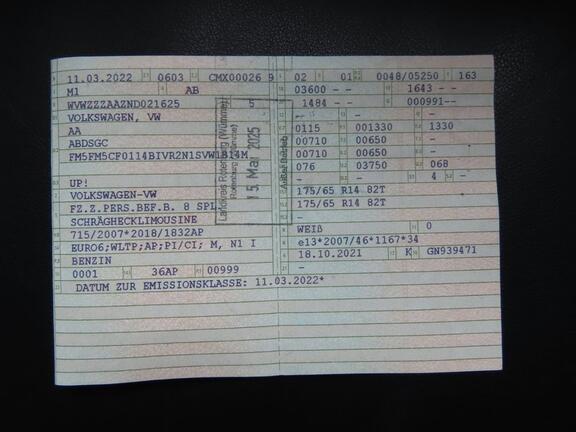 11.03.2022 0603 CMX00026 9
M1 AB
WVWZZZAAZND021625 5
VOLKSWAGEN, VW
AA
ABDSGC
FM5FM5CF0114BIVR2N1SVW1B14M
UP!
VOLKSWAGEN-VW
FZ.Z.PERS.BEF.B. 8 SPL.
SCHRÄGHECKLIMOUSINE
715/2007*2018/1832AP
EURO6;WLTP;AP;PI/CI; M, N1 I
BENZIN
0001 36AP 00999
DATUM ZUR EMISSIONSKLASSE: 11.03.2022*
02 01 0048/05250 163
03600 - - 1643 - -
1484 - - 000991--
- -
0115 001330 1330
00710 00650 -
00710 00650 -
076 03750 068
- - 4 -
175/65 R14 82T
175/65 R14 82T
-
WEIß 0
e13*2007/46*1167*34
18.10.2021 K GN939471
-
Landkreis Rotenburg (Wümme)
Rotenburg (Wümme)
15. Mai 2025
Außer Betrieb